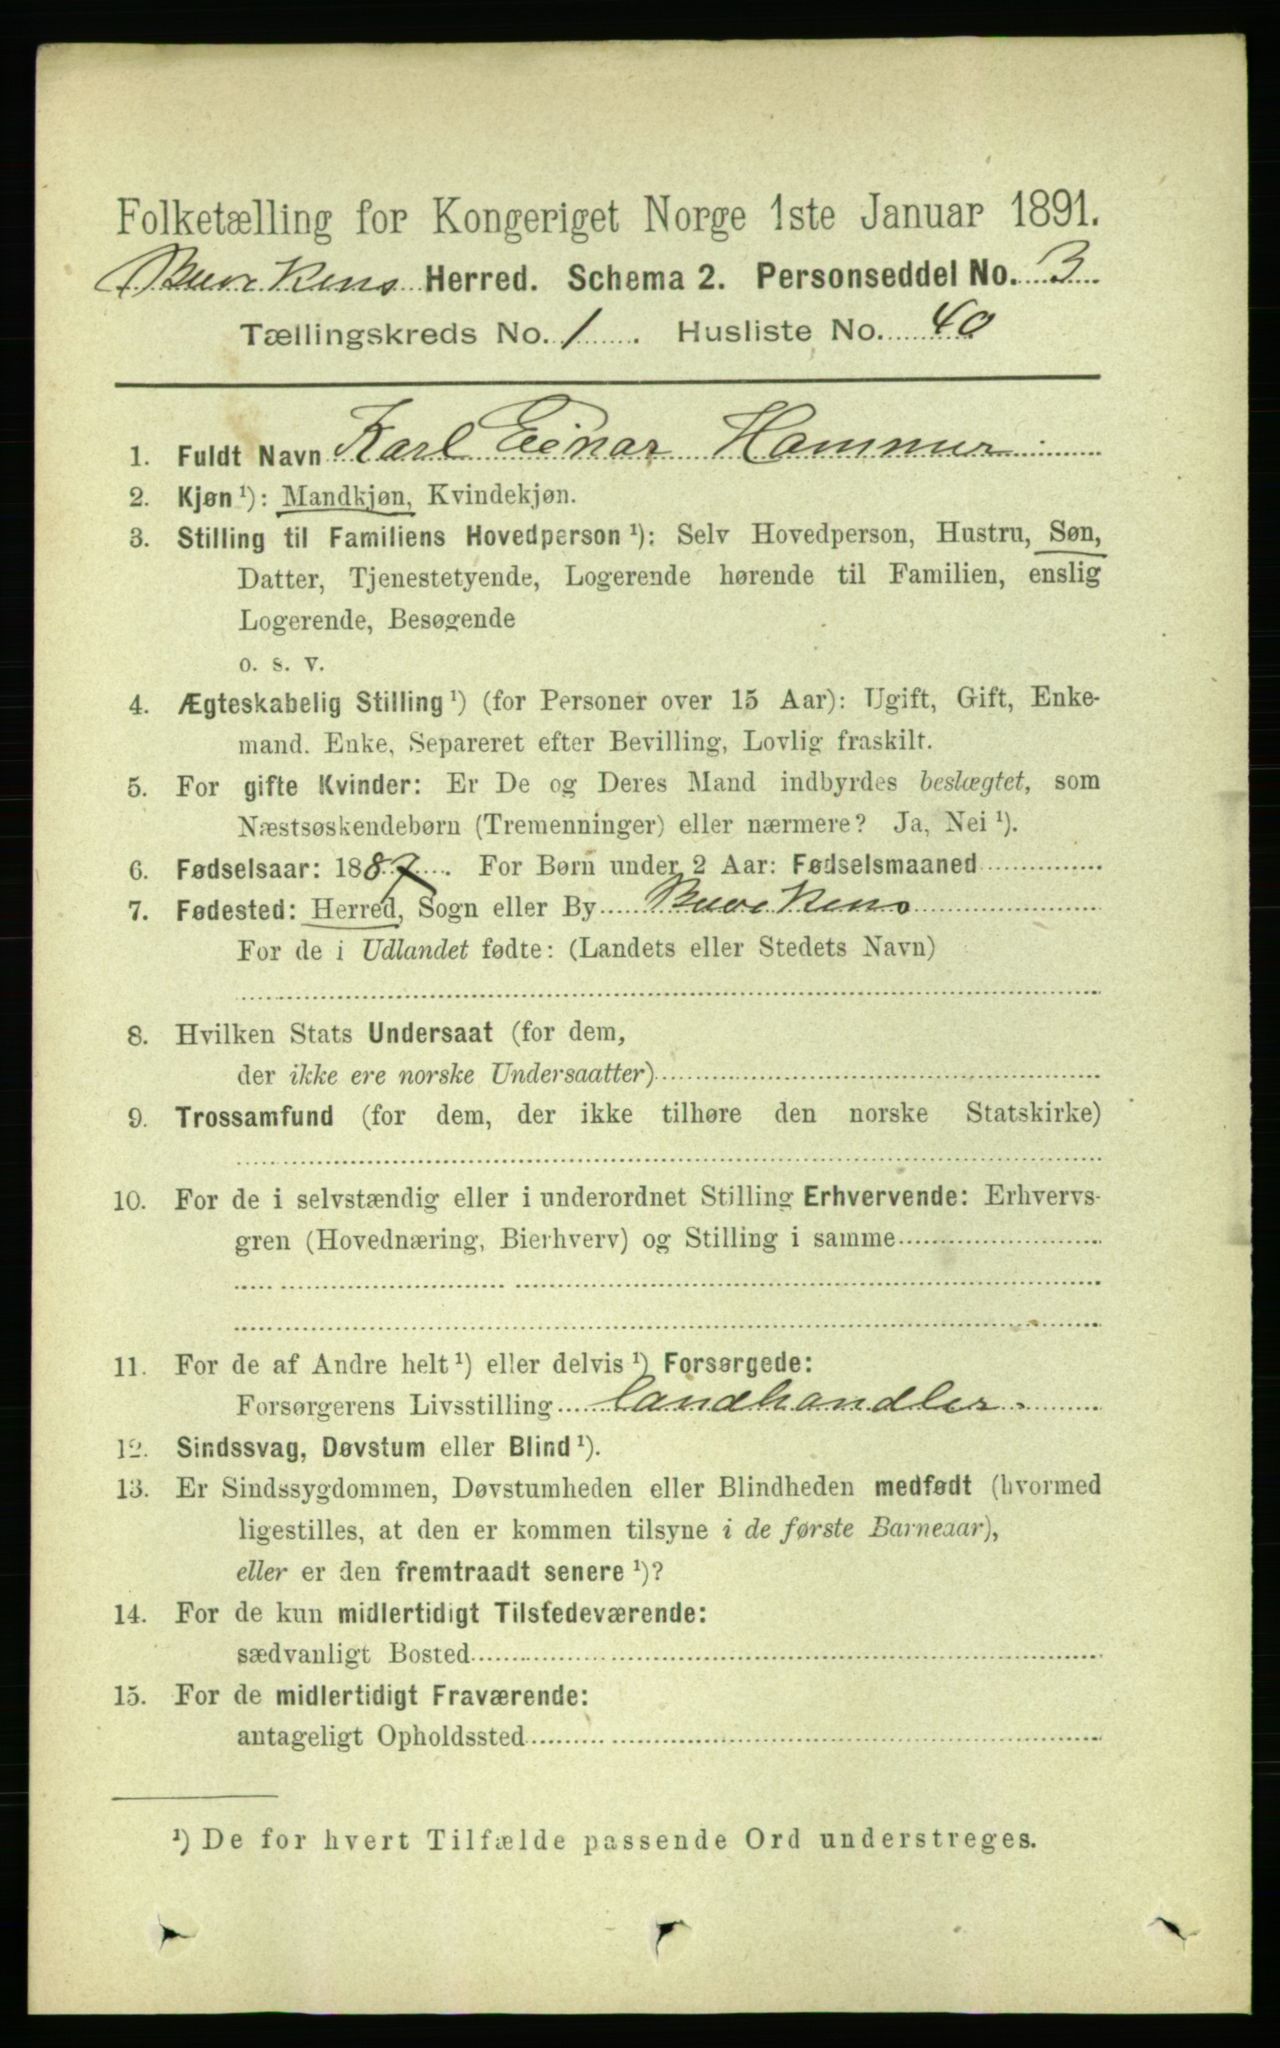 Folketælling for Kongeriget Norge 1ste Januar 1891.
Buvikens Herred. Schema 2. Personseddel No. 3
Tællingskreds No. 1 . Husliste No. 40
1. Fuldt Navn Karl Einar Hammer
2. Kjøn ¹): Mandkjøn, Kvindekjøn.
3. Stilling til Familiens Hovedperson ¹): Selv Hovedperson, Hustru, Søn,
Datter, Tjenestetyende, Logerende hørende til Familien, enslig
Logerende, Besøgende
o. s. v.
4. Ægteskabelig Stilling ¹) (for Personer over 15 Aar): Ugift, Gift, Enke-
mand. Enke, Separeret efter Bevilling, Lovlig fraskilt.
5. For gifte Kvinder: Er De og Deres Mand indbyrdes beslægtet, som
Næstsøskendebørn (Tremenninger) eller nærmere? Ja, Nei ¹).
6. Fødselsaar: 1887. For Børn under 2 Aar: Fødselsmaaned
7. Fødested: Herred, Sogn eller By Buvikens
For de i Udlandet fødte: (Landets eller Stedets Navn)
8. Hvilken Stats Undersaat (for dem,
der ikke ere norske Undersaatter)
9. Trossamfund (for dem, der ikke tilhøre den norske Statskirke)
10. For de i selvstændig eller i underordnet Stilling Erhvervende: Erhvervs-
gren (Hovednæring, Bierhverv) og Stilling i samme
11. For de af Andre helt ¹) eller delvis ¹) Forsørgede:
Forsørgerens Livsstilling Landhandler.
12. Sindssvag, Døvstum eller Blind ¹).
13. Er Sindssygdommen, Døvstumheden eller Blindheden medfødt (hvormed
ligestilles, at den er kommen tilsyne i de første Barneaar),
eller er den fremtraadt senere ¹)?
14. For de kun midlertidigt Tilstedeværende:
sædvanligt Bosted
15. For de midlertidigt Fraværende:
antageligt Opholdssted
¹) De for hvert Tilfælde passende Ord understreges.